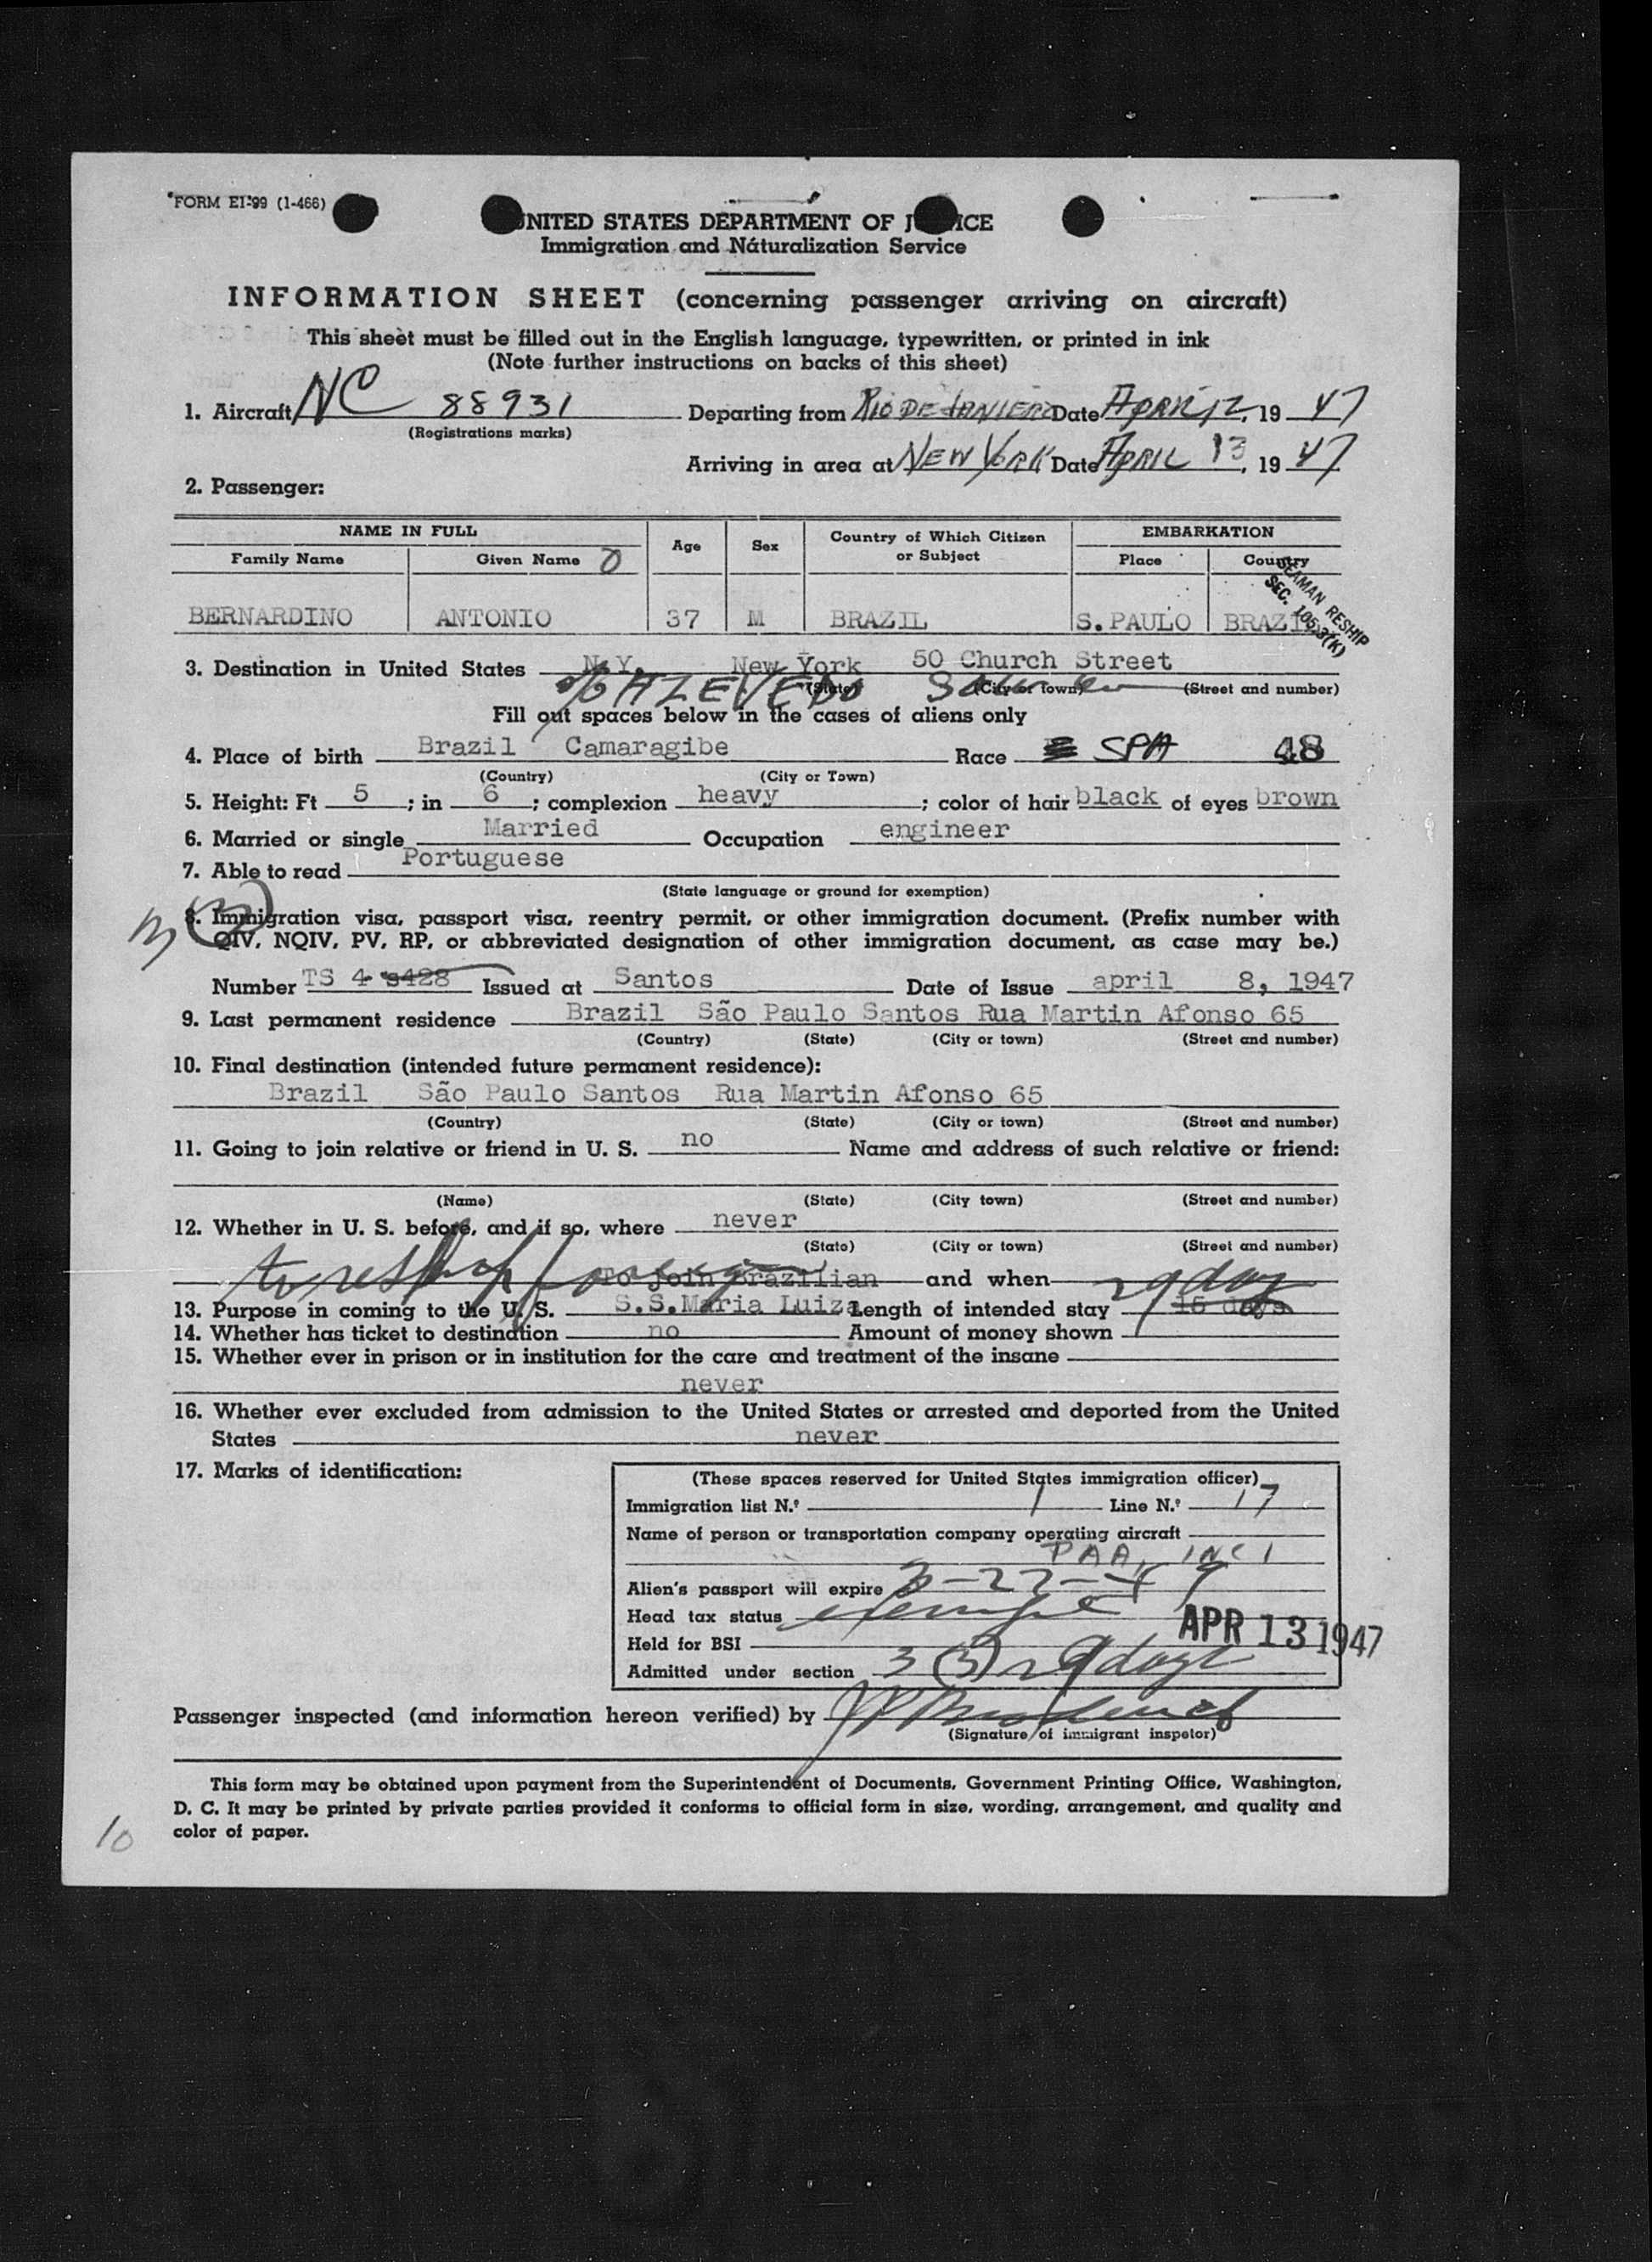 FORM EI-99 (1-466)
UNITED STATES DEPARTMENT OF JUSTICE
Immigration and Naturalization Service
INFORMATION SHEET (concerning passenger arriving on aircraft)
This sheet must be filled out in the English language, typewritten, or printed in ink
(Note further instructions on backs of this sheet)
1. Aircraft NC 88931 Departing from RIO DE JANIERO Date APRIL 12, 19 47
(Registrations marks)
Arriving in area at NEW YORK Date APRIL 13, 19 47
2. Passenger:
NAME IN FULL Age Sex Country of Which Citizen or Subject EMBARKATION
Family Name Given Name Place Country
BERNARDINO ANTONIO 37 M BRAZIL S. PAULO BRAZIL
SEAMAN RESHIP
SEC. 105.3(K)
3. Destination in United States N.Y. New York 50 Church Street
(State) (City or town) (Street and number)
c/o AZEVEDO
Fill out spaces below in the cases of aliens only
4. Place of birth Brazil Camaragibe Race SPA 48
(Country) (City or Town)
5. Height: Ft 5 ; in 6 ; complexion heavy ; color of hair black of eyes brown
6. Married or single Married Occupation engineer
7. Able to read Portuguese
(State language or ground for exemption)
3 (3)
8. Immigration visa, passport visa, reentry permit, or other immigration document. (Prefix number with
QIV, NQIV, PV, RP, or abbreviated designation of other immigration document, as case may be.)
Number TS 4 s428 Issued at Santos Date of Issue april 8, 1947
9. Last permanent residence Brazil São Paulo Santos Rua Martin Afonso 65
(Country) (State) (City or town) (Street and number)
10. Final destination (intended future permanent residence):
Brazil São Paulo Santos Rua Martin Afonso 65
(Country) (State) (City or town) (Street and number)
11. Going to join relative or friend in U. S. no Name and address of such relative or friend:
(Name) (State) (City town) (Street and number)
12. Whether in U. S. before, and if so, where never
(State) (City or town) (Street and number)
to reship foreign To join Brazilian and when 29 days
13. Purpose in coming to the U. S. S.S.Maria Luiza Length of intended stay 15 days
14. Whether has ticket to destination no Amount of money shown
15. Whether ever in prison or in institution for the care and treatment of the insane
never
16. Whether ever excluded from admission to the United States or arrested and deported from the United
States never
17. Marks of identification:
(These spaces reserved for United States immigration officer)
Immigration list N.º 1 Line N.º 17
Name of person or transportation company operating aircraft
PAA, INC
Alien's passport will expire 3-22-49
Head tax status exempt
Held for BSI APR 13 1947
Admitted under section 3 (3) 29 days
Passenger inspected (and information hereon verified) by
(Signature of immigrant inspetor)
This form may be obtained upon payment from the Superintendent of Documents, Government Printing Office, Washington,
D. C. It may be printed by private parties provided it conforms to official form in size, wording, arrangement, and quality and
color of paper.
10